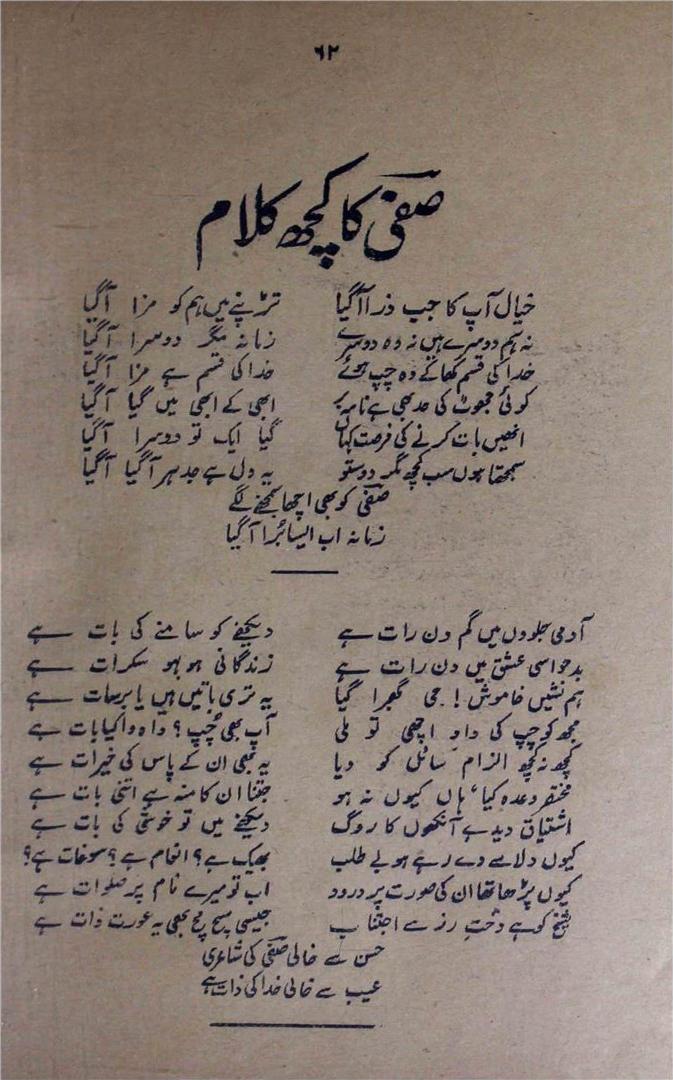 ۶۲
صفی کا کچھ کلام
خیال آپ کا جب ذرا آگیا تڑپنے میں ہم کو مزا آگیا
نہ ہم دوسرے ہیں نہ وہ دوسرے زمانہ مگر دوسرا آگیا
خدا کی قسم کھا کے وہ چپ ہوئے خدا کی قسم ہے مزا آگیا
کوئی جھوٹ کی حد بھی ہے نامہ بر ابھی کے ابھی میں گیا آگیا
انھیں بات کرنے کی فرصت کہاں گیا ایک تو دوسرا آگیا
سمجھتا ہوں سب کچھ مگر دوستو یہ دل ہے جدہر آگیا آگیا
صفی کو بھی اچھا سمجھنے لگے
زمانہ اب ایسا بُرا آگیا
آدمی جلووں میں گم دن رات ہے دیکھنے کو سامنے کی بات ہے
بدحواسی عشق میں دن رات ہے زندگانی ہو بہو سکرات ہے
ہم نشیں خاموش! جی گھبرا گیا یہ تری باتیں ہیں یا برسات ہے
مجھ کو چپ کی داد اچھی تو ملی آپ بھی چُپ؟ واہ وا کیا بات ہے
کچھ نہ کچھ الزام سائل کو دیا یہ بھی ان کے پاس کی خیرات ہے
مختصر وعدہ کیا، ہاں کیوں نہ ہو جتنا ان کا منہ ہے اتنی بات ہے
اشتیاق دید ہے آنکھوں کا روگ دیکھنے میں تو خوشی کی بات ہے
کیوں دلاسے دے رہے ہو بے طلب بھیک ہے؟ انعام ہے؟ سوغات ہے؟
کیوں پڑھا تھا ان کی صورت پر درود اب تو میرے نام پر صلوات ہے
شیخ کو ہے دختِ رز سے اجتناب جیسی سچ مچ بھی یہ عورت ذات ہے
حسن سے خالی صفی کی شاعری
عیب سے خالی خدا کی ذات ہے